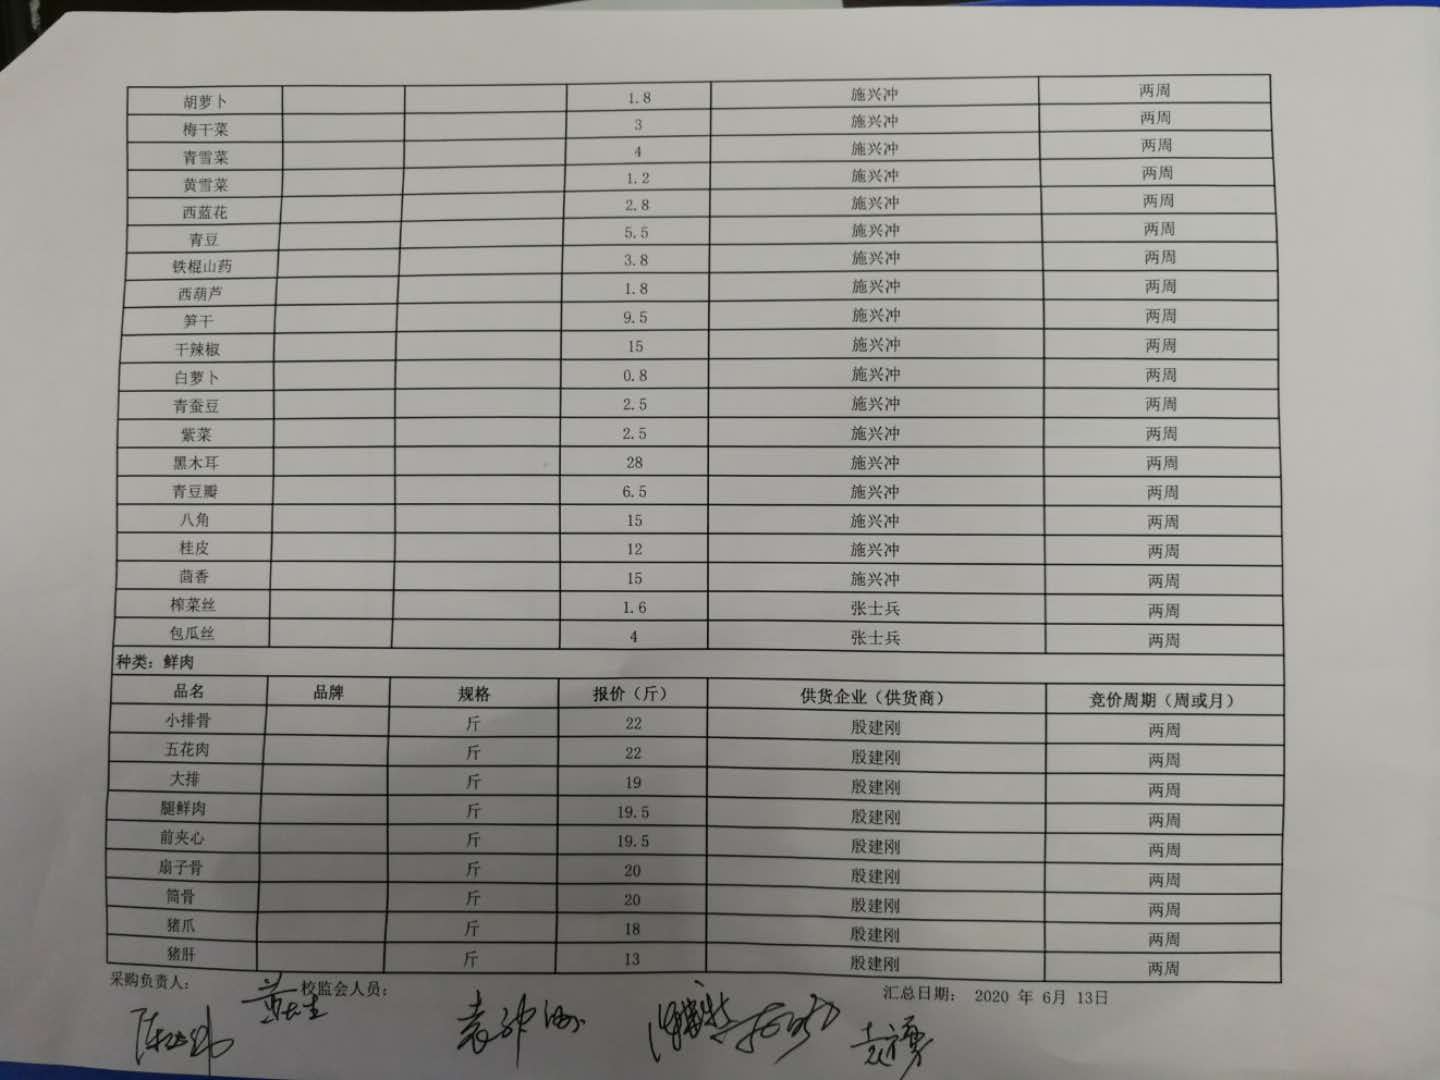 胡萝卜 1.8 施兴冲 两周
梅干菜 3 施兴冲 两周
青雪菜 4 施兴冲 两周
黄雪菜 1.2 施兴冲 两周
西蓝花 2.8 施兴冲 两周
青豆 5.5 施兴冲 两周
铁棍山药 3.8 施兴冲 两周
西葫芦 1.8 施兴冲 两周
笋干 9.5 施兴冲 两周
干辣椒 15 施兴冲 两周
白萝卜 0.8 施兴冲 两周
青蚕豆 2.5 施兴冲 两周
紫菜 2.5 施兴冲 两周
黑木耳 28 施兴冲 两周
青豆瓣 6.5 施兴冲 两周
八角 15 施兴冲 两周
桂皮 12 施兴冲 两周
茴香 15 施兴冲 两周
榨菜丝 1.6 张士兵 两周
包瓜丝 4 张士兵 两周
种类：鲜肉
品名 品牌 规格 报价（斤） 供货企业（供货商） 竞价周期（周或月）
小排骨 斤 22 殷建刚 两周
五花肉 斤 22 殷建刚 两周
大排 斤 19 殷建刚 两周
腿鲜肉 斤 19.5 殷建刚 两周
前夹心 斤 19.5 殷建刚 两周
扇子骨 斤 20 殷建刚 两周
筒骨 斤 20 殷建刚 两周
猪爪 斤 18 殷建刚 两周
猪肝 斤 13 殷建刚 两周
采购负责人： 校监会人员： 汇总日期： 2020 年 6月 13日